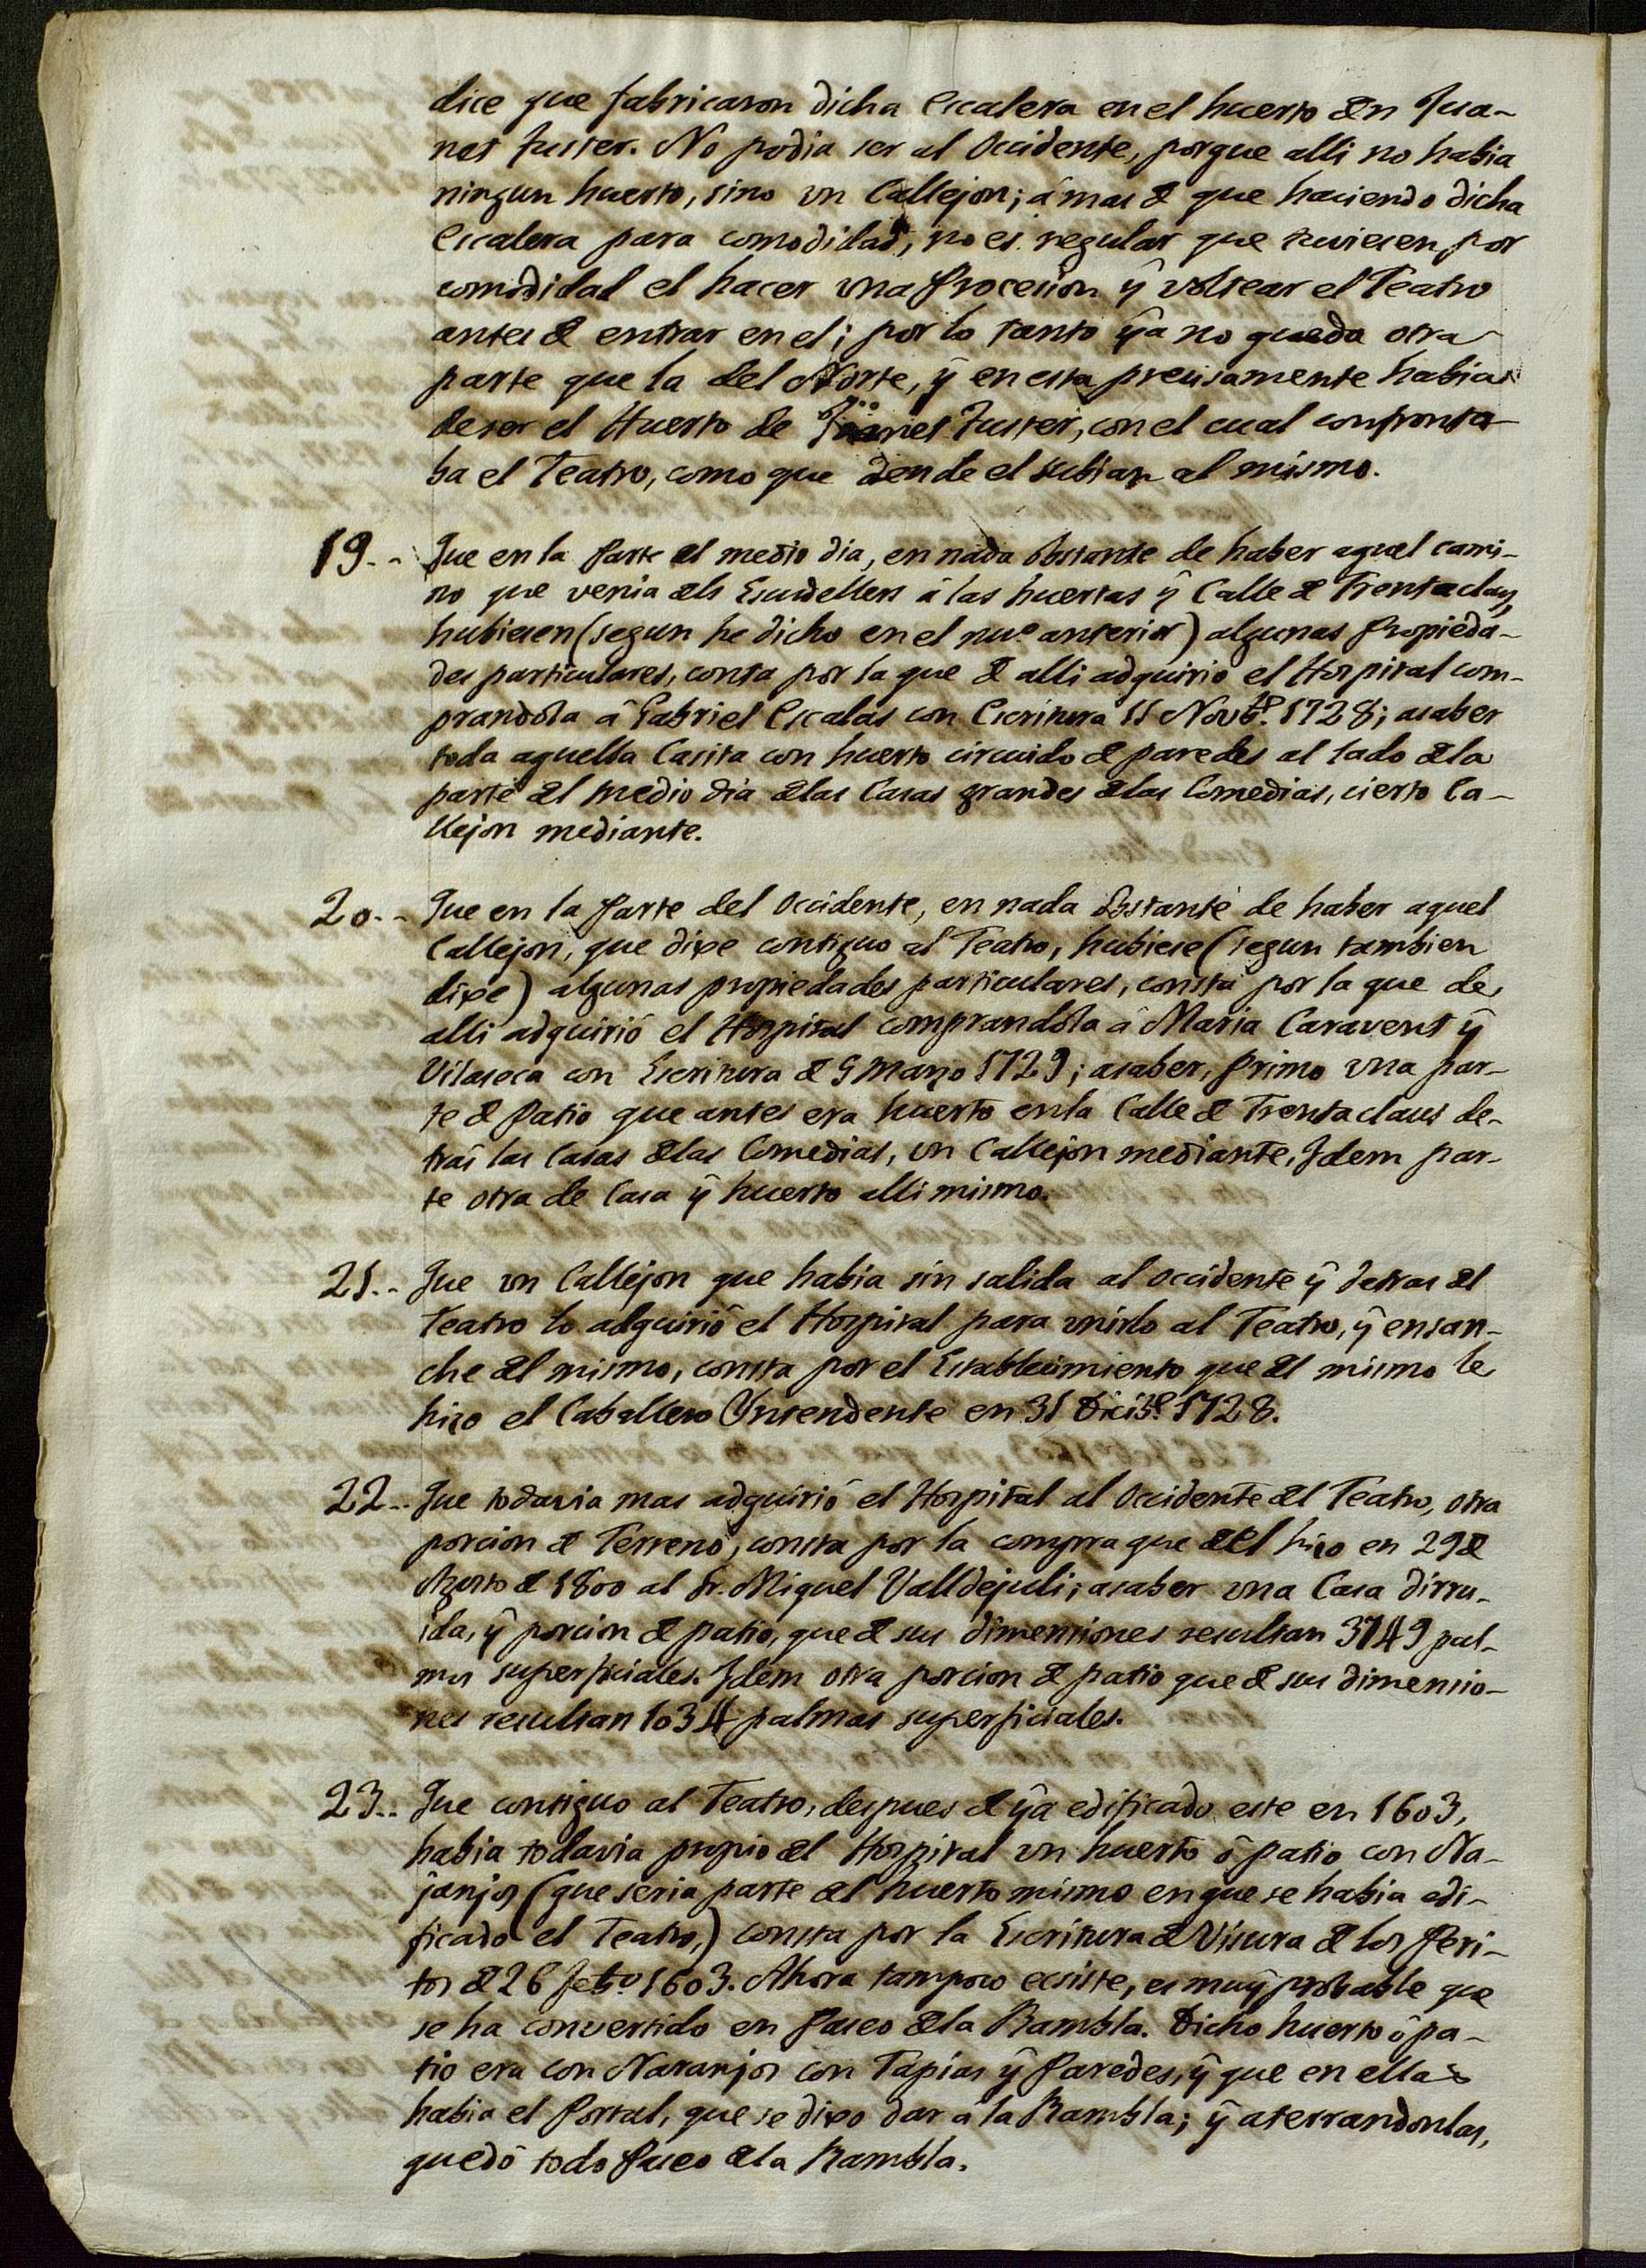 dice que fabricaron dicha Escalera en el huerto den Jua-
net Fuster. No podia ser al Occidente, porque alli no habia
ningun huerto, sino un Callejon; â mas de que haciendo dicha
Escalera para comodidad, no es regular que tuviesen por
comodidad el hacer una Procesion ÿ voltear el Teatro
antes de entrar en el; por lo tanto ÿa no queda otra
parte que la del Norte, ÿ en esta precisamente habia
de ser el Huerto de Juanet Fuster, con el cual confronta-
ba el Teatro, como que dende el subian al mismo.
19.. Que en la Parte del medio dia, en nada obstante de haber aquel cami-
no que venia dels Escudellers â las huertas ÿ Calle de Trentaclaus,
hubiesen (segun he dicho en el nuº anterior) algunas Propieda-
des particulares, consta por la que de alli adquirio el Hospital com-
prandola â Gabriel Escalas con Escritura 11 Novbe. 1728; asaber
toda aquella Casita con huerto circuido de paredes al lado dela
parte del medio dia delas Casas grandes delas Comedias, cierto Ca-
llejon mediante.
20.. Que en la Parte del Occidente, en nada Obstante de haber aquel
Callejon, que dixe contiguo al Teatro, hubiese (segun tambien
dixe) algunas propiedades particulares, consta por la que de
alli adquirió el Hospital comprandola â Maria Caravent ÿ
Vilaseca con Escritura de 9 Marzo 1729; asaber, Primo una par-
te de Patio que antes era huerto enla Calle de Trentaclaus de-
trás las Casas delas Comedias, un Callejon mediante, Idem par-
te otra de Casa ÿ huerto alli mismo.
21.. Que un Callejon que habia sin salida al occidente ÿ detras del
Teatro lo adquirió el Hospital para unirlo al Teatro, ÿ ensan-
che del mismo, consta por el Establecimiento que del mismo le
hizo el Caballero Yntendente en 31 Dicbe. 1728.
22.. Que todavia mas adquirió el Hospital al Occidente del Teatro, otra
porcion de Terreno, consta por la compra que del hizo en 29 de
Agosto de 1800 al Sr. Miguel Valldejuli; asaber una Casa dirru-
ida, ÿ porcion de patio, que de sus dimensiones resultan 3749 pal-
mos superficiales. Idem otra porcion de patio que de sus dimensio-
nes resultan 1034 palmos superficiales.
23.. Que contiguo al Teatro, despues de ÿa edificado este en 1603,
habia todavia propio del Hospital un huerto ô patio con Na-
janjos (que seria parte del huerto mismo en que se habia edi-
ficado el Teatro,) consta por la Escritura de Visura de los Peri-
tos de 26 Febº. 1603. Ahora tampoco ecsiste, es muÿ probable que
se ha convertido en Paseo dela Rambla. Dicho huerto ô pa-
tio era con Naranjos con Tapias ÿ Paredes, ÿ que en ellas
habia el Portal, que se dixo dar â la Rambla; ÿ aterrandonlas,
quedó todo Paseo dela Rambla.